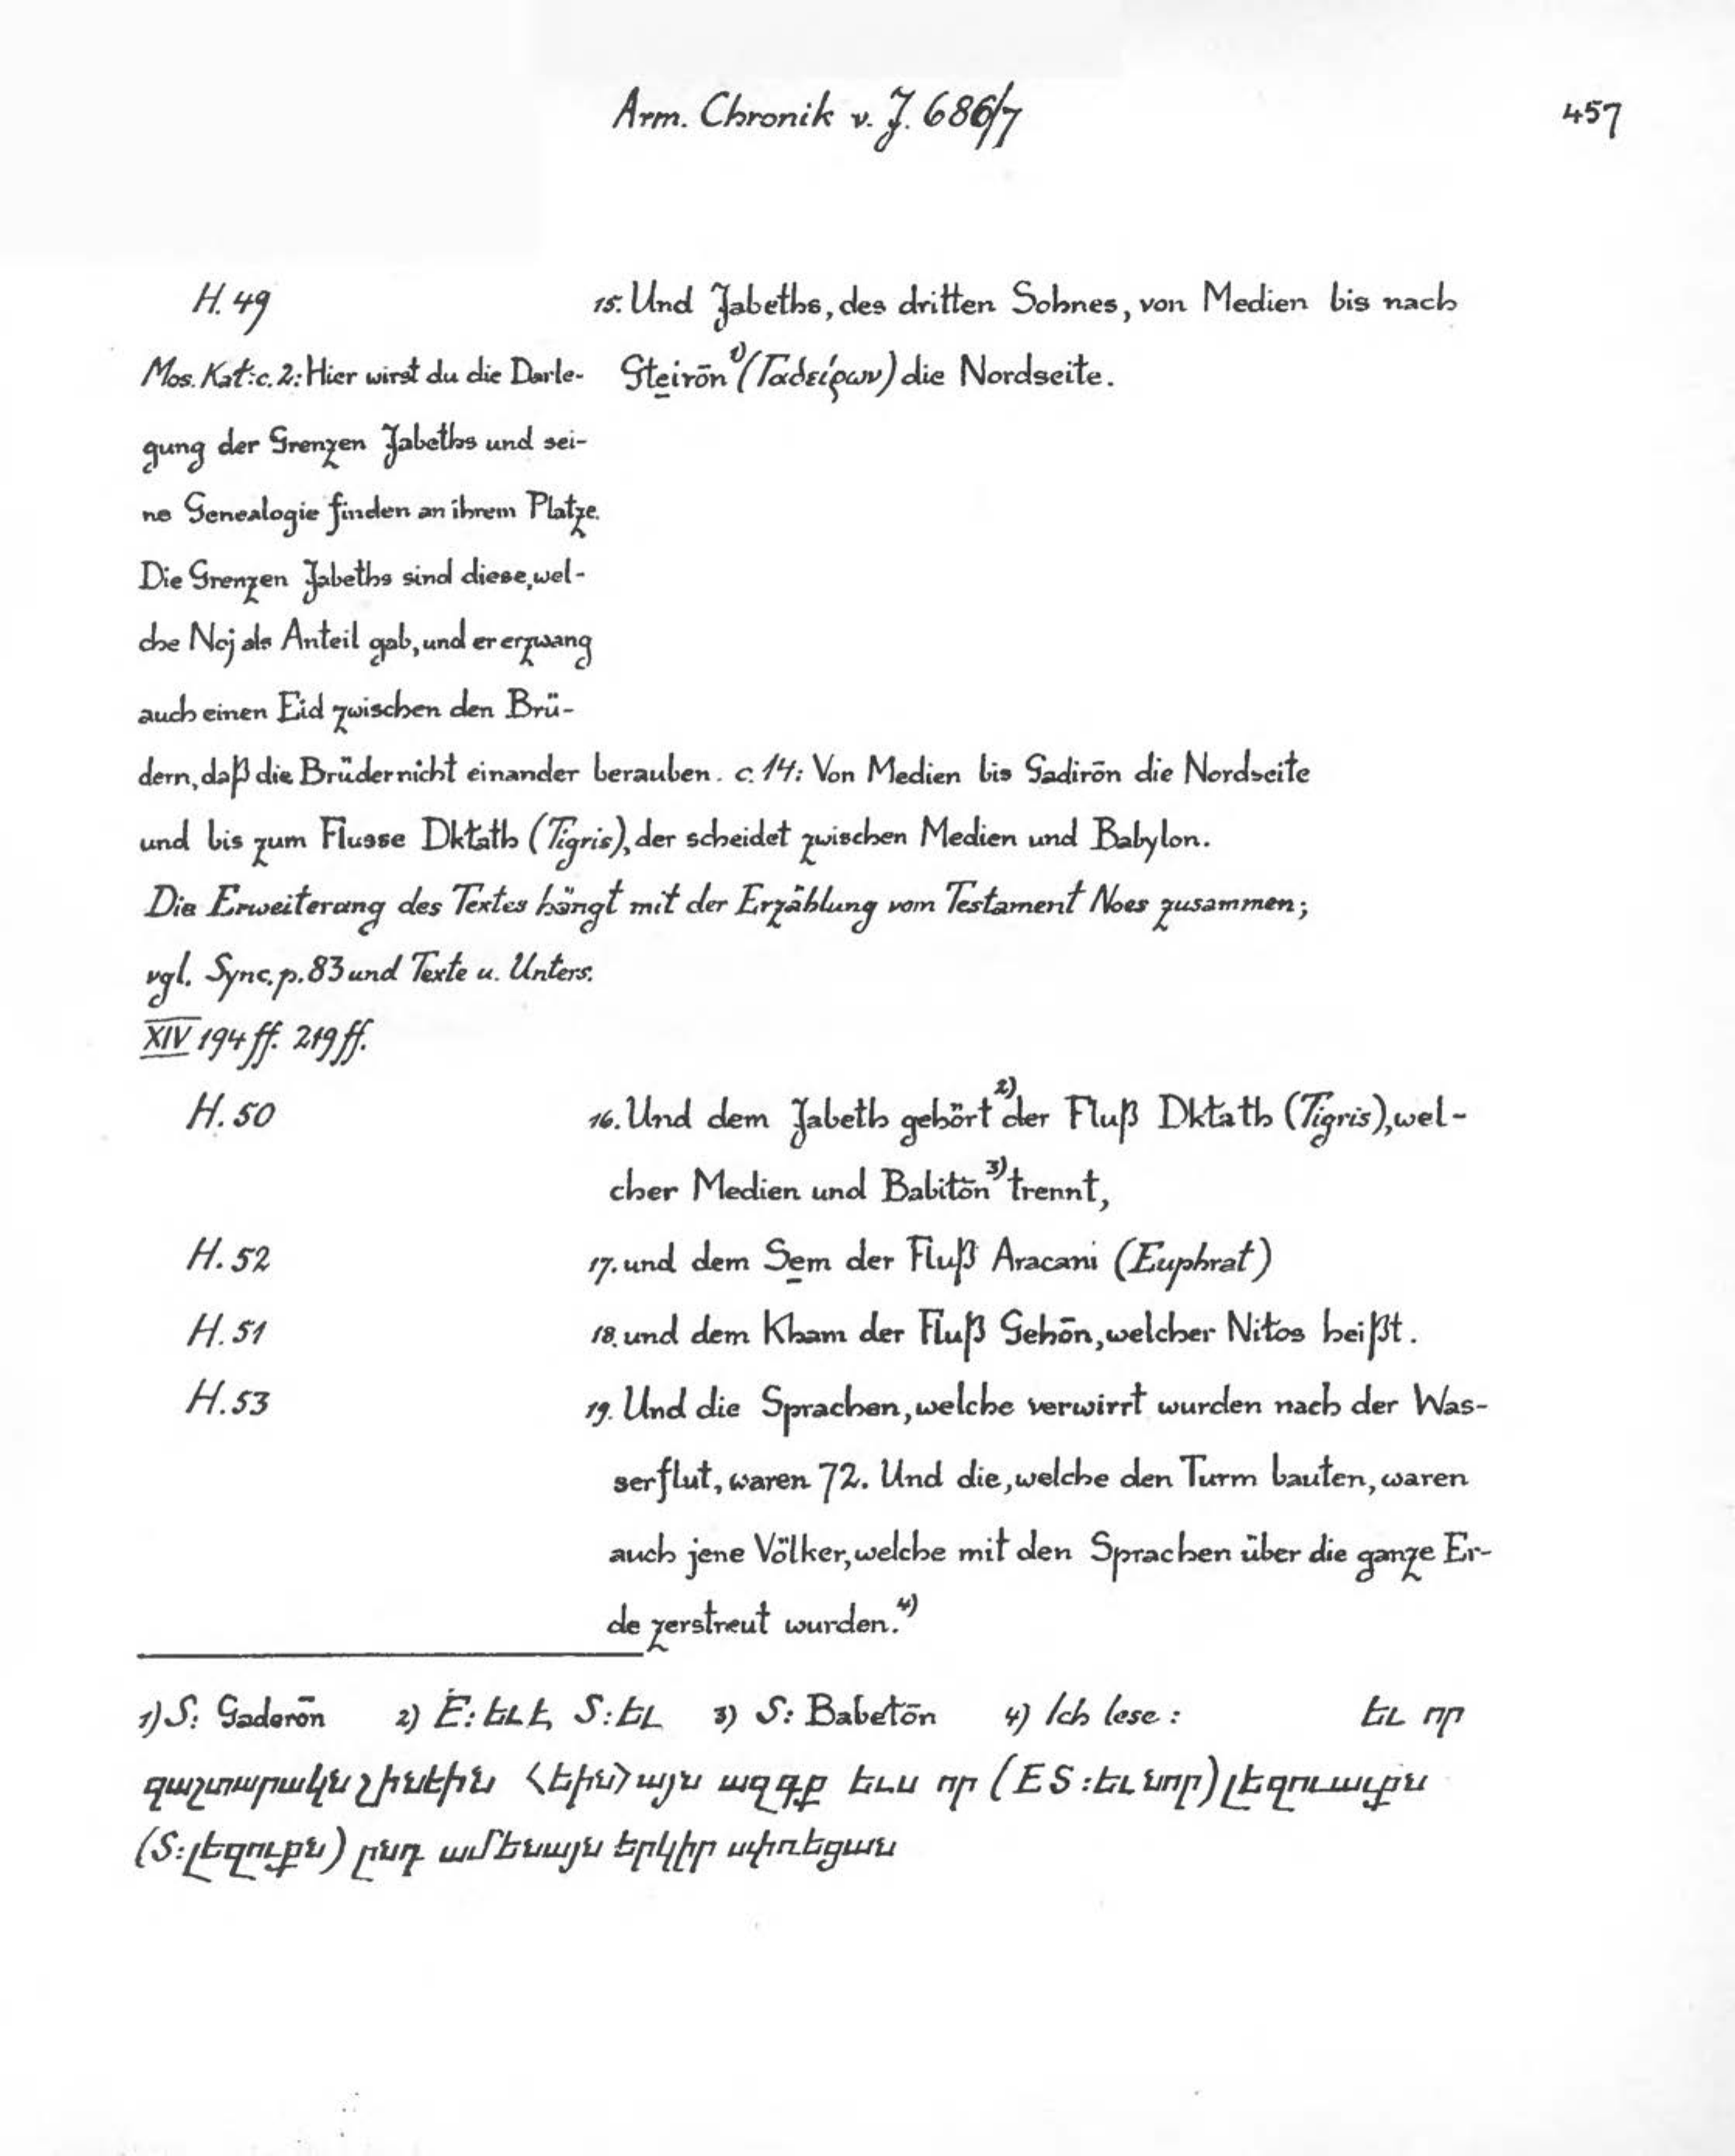 Arm. Chronik v. J. 686/7 457
H. 49 15. Und Jabeths, des dritten Sohnes, von Medien bis nach
Mos. Kał: c. 2: Hier wirst du die Darle- Gteirōn 1) (Γαδείρων) die Nordseite.
gung der Grenzen Jabeths und sei-
ne Genealogie finden an ihrem Platze.
Die Grenzen Jabeths sind diese, wel-
che Noj als Anteil gab, und er erzwang
auch einen Eid zwischen den Brü-
dern, daß die Brüder nicht einander berauben. c. 14: Von Medien bis Gadirōn die Nordseite
und bis zum Flusse Dktath (Tigris), der scheidet zwischen Medien und Babylon.
Die Erweiterung des Textes hängt mit der Erzählung vom Testament Noes zusammen;
vgl. Sync. p. 83 und Texte u. Unters.
XIV 194 ff. 219 ff.
H. 50 16. Und dem Jabeth gehört 2) der Fluß Dktath (Tigris), wel-
cher Medien und Babitōn 3) trennt,
H. 52 17. und dem Sem der Fluß Aracani (Euphrat)
H. 51 18. und dem Kham der Fluß Gehōn, welcher Nitos heißt.
H. 53 19. Und die Sprachen, welche verwirrt wurden nach der Was-
serflut, waren 72. Und die, welche den Turm bauten, waren
auch jene Völker, welche mit den Sprachen über die ganze Er-
de zerstreut wurden. 4)
1) S: Gaderōn 2) E: եւ է, S: եւ 3) S: Babetōn 4) Ich lese: եւ որ
զաշտարակն շինէին <էին> այն ազգք եւս որ (ES: եւ նոր) լեզուաւքն
(S: լեզուքն) ընդ ամենայն երկիր սփռեցան